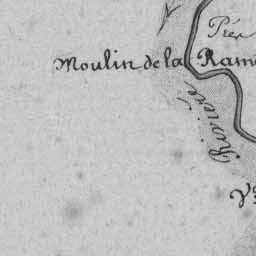 Prés
Moulin de la Ram
Rivière